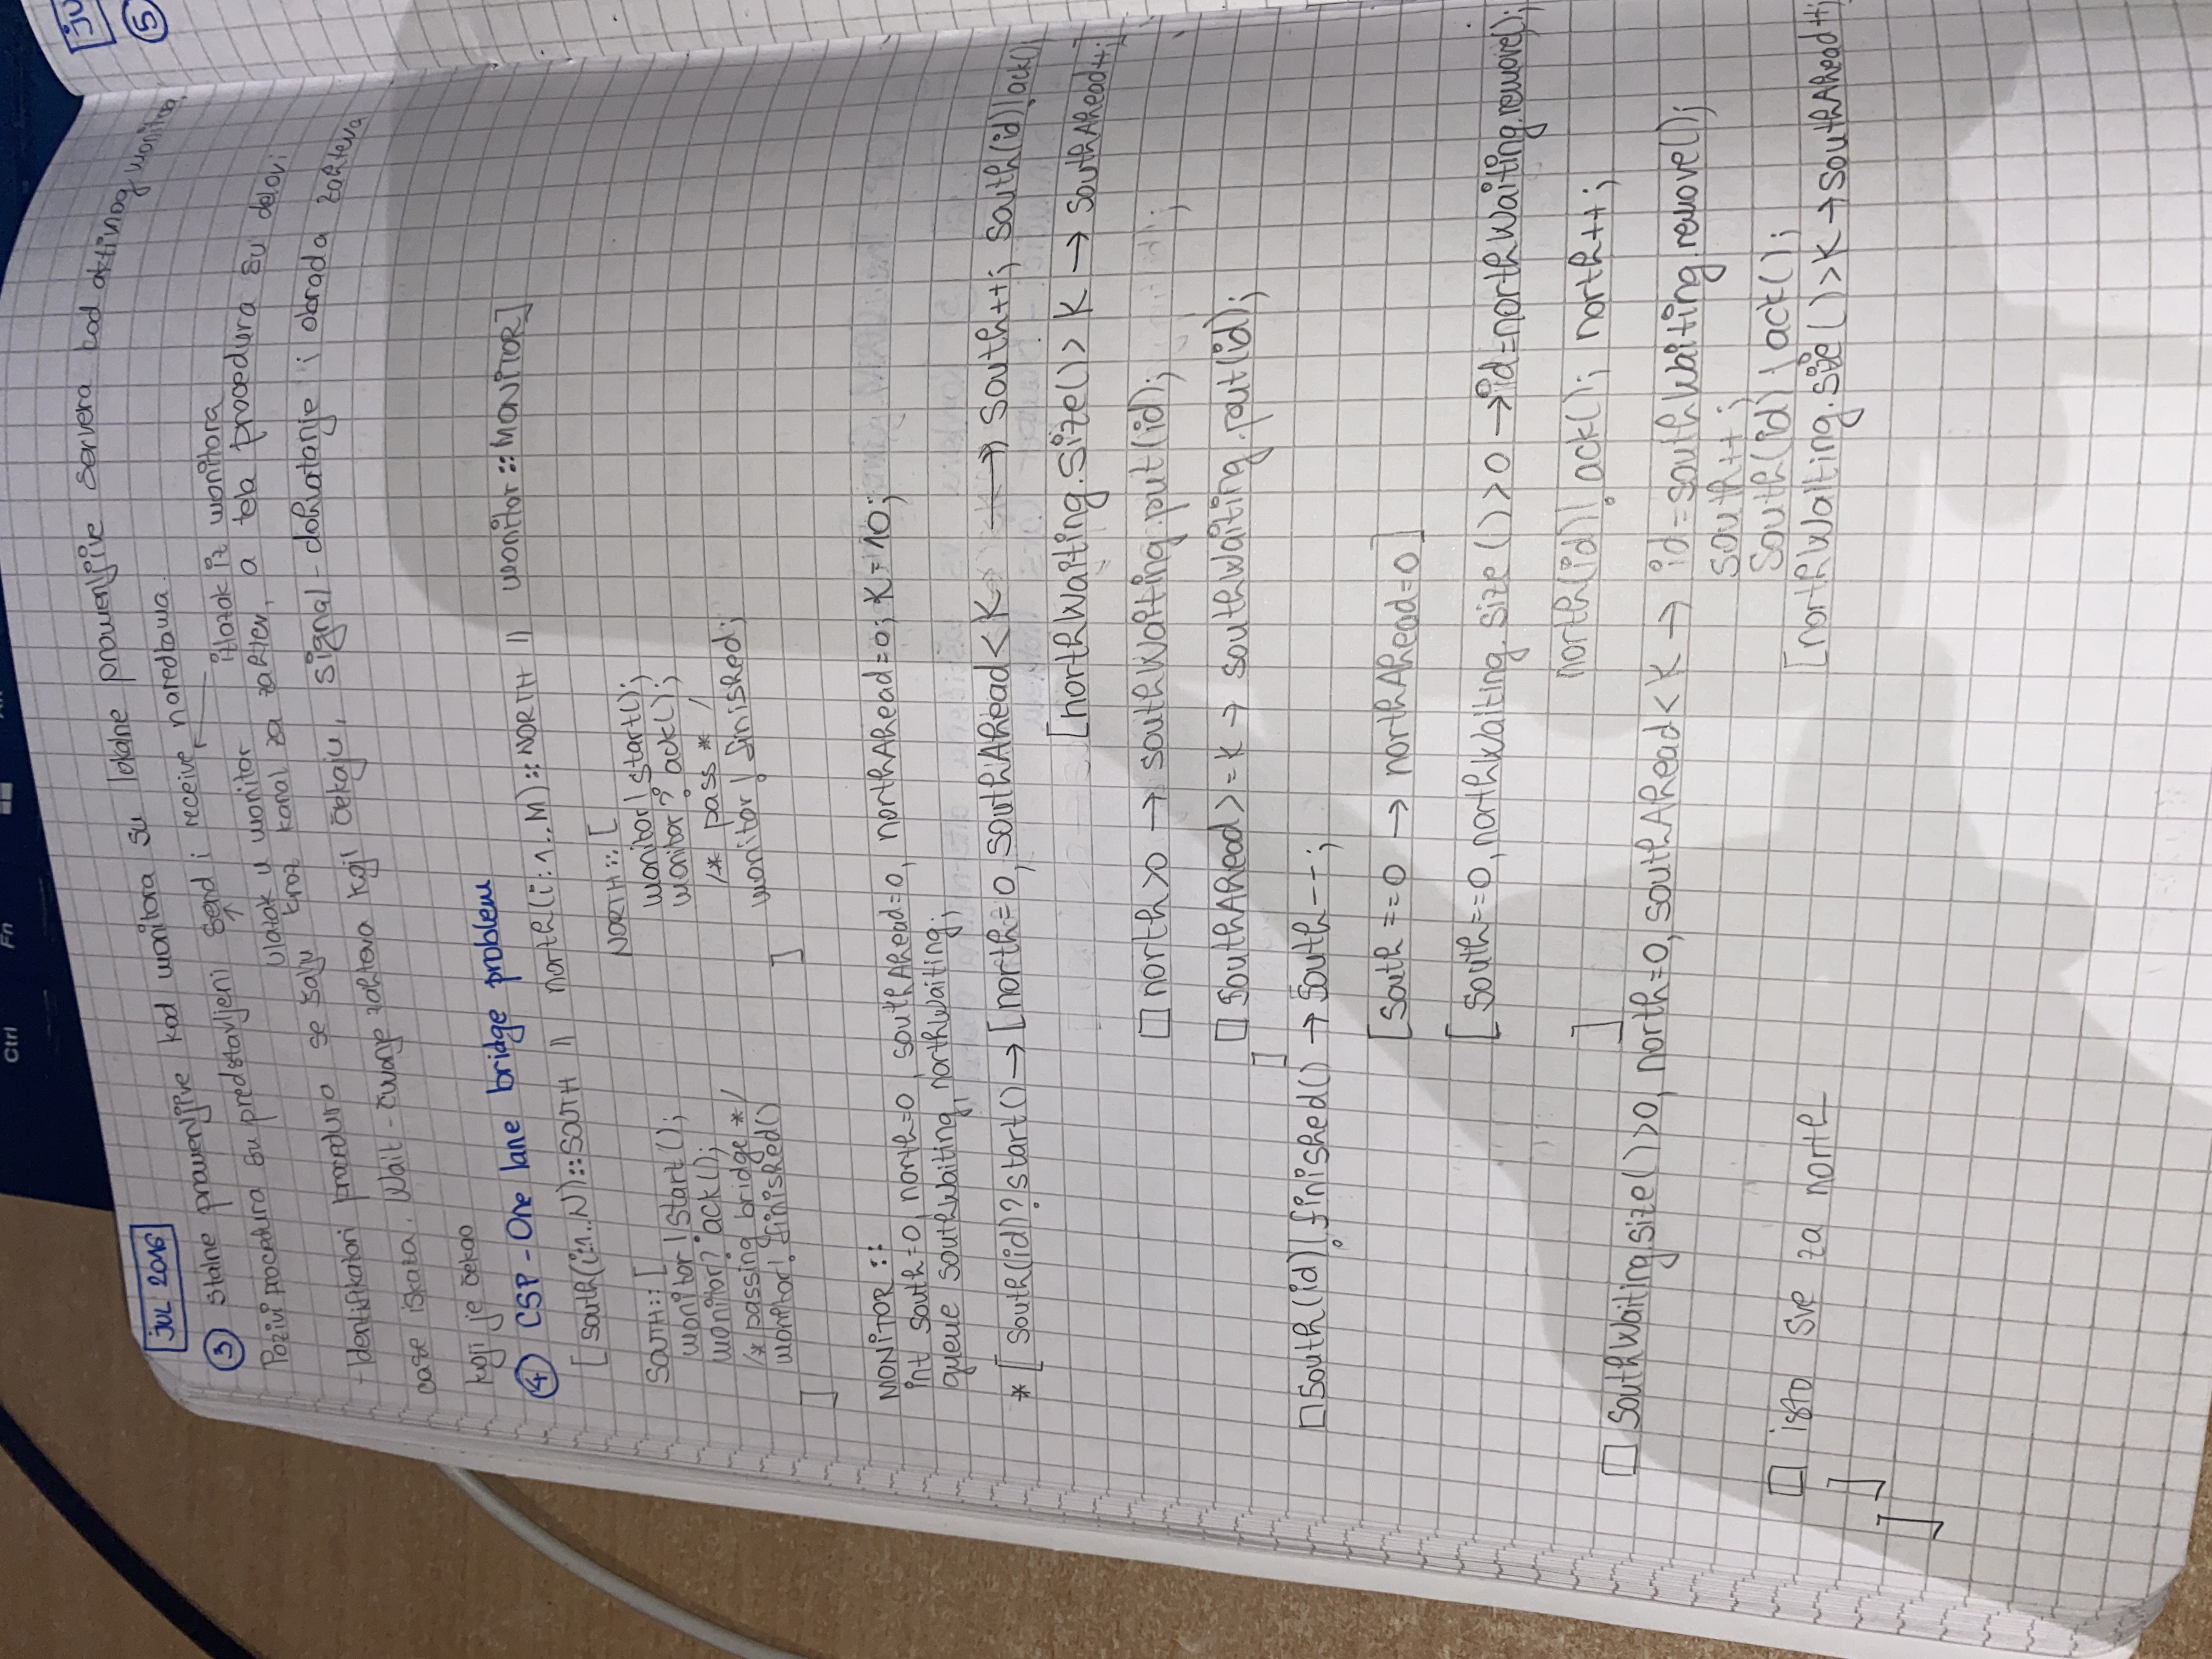 Ctrl Fn
JUL 2016
③ Stalne promenljive kod monitora su lokalne promenljive servera kod aktivnog monitora.
Pozivi procedura su predstavljeni send i receive naredbama.
↑ ulazak u monitor izlazak iz monitora
- Identifikatori procedura se šalju kroz kanal za zahtev, a tela procedura su delovi
case iskaza. Wait - čuvanje zahteva koji čekaju, signal - dohvatanje i obrada zahteva
koji je čekao
④ CSP - One lane bridge problem
[ south(i:1..N)::SOUTH || north(i:1..M)::NORTH || monitor::MONITOR]
SOUTH::[
monitor!start();
monitor?ack();
/*passing bridge*/
monitor!finished()
]
NORTH::[
monitor!start();
monitor?ack();
/* pass */
monitor!finished;
]
MONITOR::
int south=0, north=0, southAhead=0, northAhead=0; K=10;
queue southWaiting, northWaiting;
*[ south(id)?start() → [north=0, southAhead<K → south++; south(id)!ack()
[northWaiting.size()>K → southAhead++;]
□ north>0 → southWaiting.put(id); ;
□ southAhead>=K → southWaiting.put(id);
]
□ south(id)!finished() → south--;
[south==0 → northAhead=0]
[south==0, northWaiting.size()>0 → id=northWaiting.remove();
north(id)!ack(); north++;
]
□ southWaiting.size()>0, north=0, southAhead<K → id=southWaiting.remove();
south++;
south(id)!ack();
[northWaiting.size()>K → southAhead++;
□ isto sve za north
]
]
JU
⑤